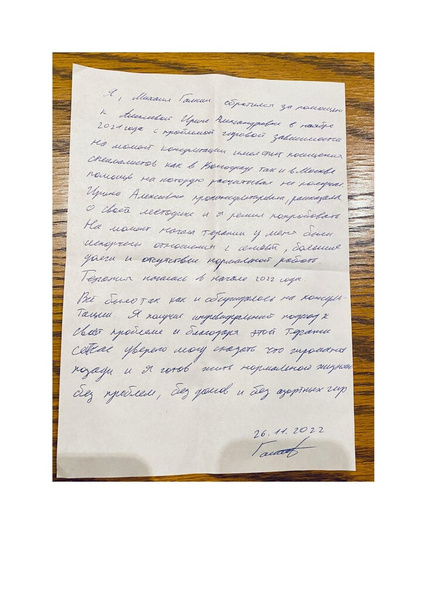 Я, Михаил Галкин обратился за помощью
к Ирине Александровне в ноябре
2021 года с проблемой игровой зависимости
На момент консультации имел опыт посещения
специалистов как в так и в Москве
помощь на которую рассчитывал не получил
Ирина Алексеевна проконсультировала, рассказала
о своей методике и я решил попробовать
На момент начала терапии у меня были
испорчены отношения с семьёй, большие
долги и отсутствие нормальной работы
Терапия началась в начале 2022 года
Всё было так как и обсуждалось на консуль-
тации. Я получил индивидуальный подход к
своей проблеме и благодаря этой терапии
сейчас уверено могу сказать что игромания
позади и я готов жить нормальной жизнью
без проблем, без долгов и без азартных игр
26.11.2022